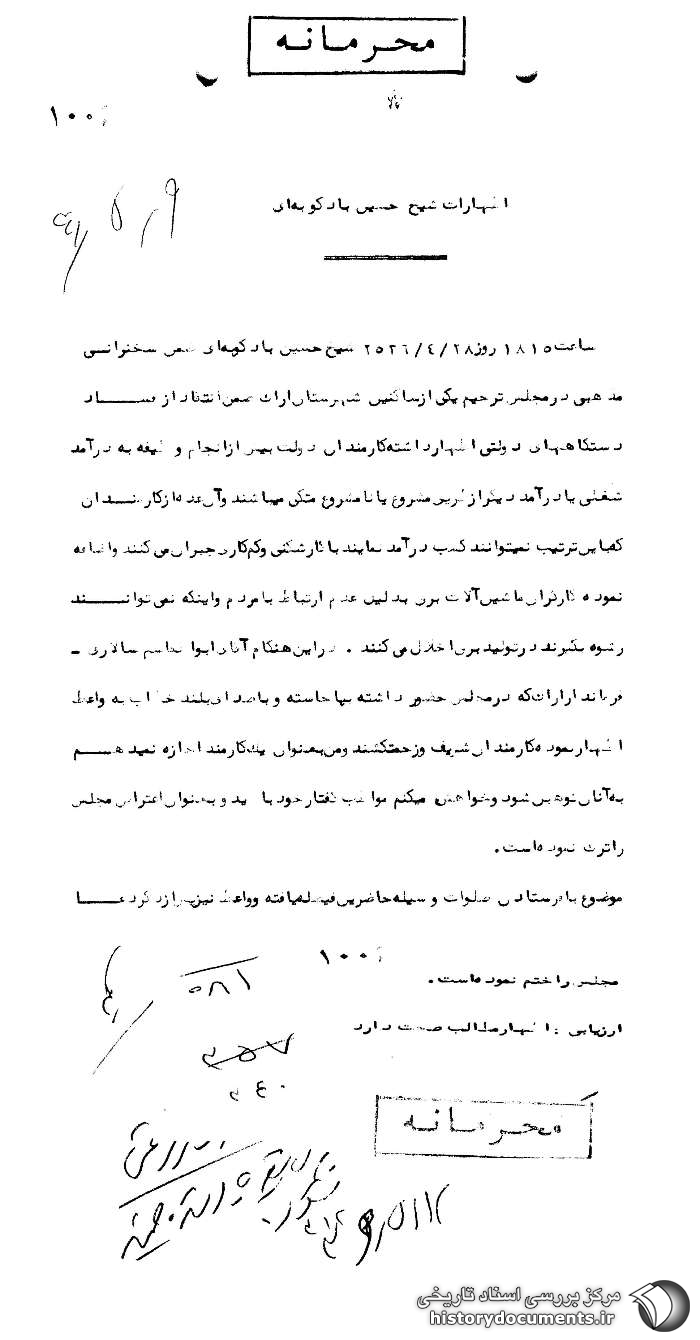 محرمانه
۱۰۰
اظهارات شیخ حسین بادکوبه‌ای
ساعت ۱۸۱۵ روز ۲۵۳۶/۴/۲۸ شیخ حسین بادکوبه‌ای ضمن سخنرانی
مذهبی در مجلس ترحیم یکی از ساکنین شهرستان اراک ضمن انتقاد از فساد
دستگاههای دولتی اظهار داشته کارمندان دولت پیش از انجام وظیفه به درآمد
شغلی یا درآمد دیگر از طریق مشروع یا نامشروع متکی میباشند و آن عده از کارمندان
که باین ترتیب نمیتوانند کسب درآمد نمایند با کارشکنی و کم‌کاری جبران می‌کنند و اضافه
نموده کارگران ماشین‌آلات برق بدلیل عدم ارتباط با مردم و اینکه نمی‌توانند
رشوه بگیرند در تولید برق اخلال می‌کنند . در این هنگام آقای ابوالقاسم سالاری -
فرماندار اراک که در مجلس حضور داشته بپاخاسته و با صدای بلند خطاب به واعظ
اظهار نموده کارمندان شریف و زحمتکشند و من بعنوان یک کارمند اجازه نمیدهم
به آنان توهین شود و خواهش میکنم مواظب گفتار خود باشید و بعنوان اعتراض مجلس
را ترک نموده است.
موضوع با فرستادن صلوات وسیله حاضرین فیصله یافته و واعظ نیز پس از ذکر دعا
۱۰۰
مجلس را ختم نموده است.
ارزیابی : اظهار مطالب صحت دارد
۵۸۱
محرمانه
مرکز بررسی اسناد تاریخی
historydocuments.ir